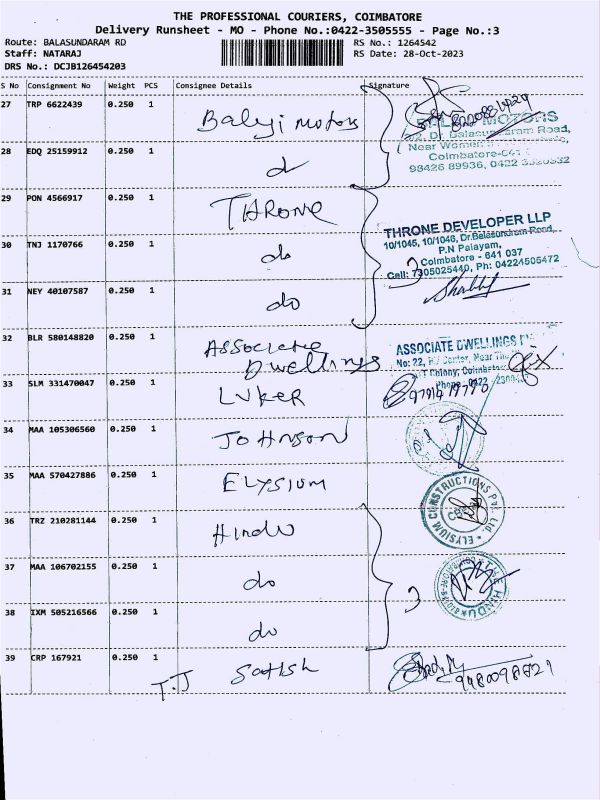 THE PROFESSIONAL COURIERS, COIMBATORE
Delivery Runsheet - MO - Phone No.:0422-3505555 - Page No.:3
Route: BALASUNDARAM RD RS No.: 1264542
Staff: NATARAJ RS Date: 28-Oct-2023
DRS No.: DCJB126454203
S No Consignment No Weight PCS Consignee Details Signature
27 TRP 6622439 0.250 1 Balaji Motors
MOTORS
Dr. Balasundaram Road,
Near Women
Coimbatore-641
98426 89936, 0422
28 EDQ 25159912 0.250 1 d
29 PON 4566917 0.250 1 THRONE
THRONE DEVELOPER LLP
10/1045, 10/1046, Dr.Balasundram Road,
P.N Palayam,
Coimbatore - 641 037
Cell: 7305025440, Ph: 04224505472
30 TNJ 1170766 0.250 1 do 3
31 NEY 40107587 0.250 1 do
32 BLR 580148820 0.250 1 Associate Dwellings
ASSOCIATE DWELLINGS
No: 22, Center, Near The
Colony, Coimbatore
Phone 0422
33 SLM 331470047 0.250 1 LUKER
34 MAA 105306560 0.250 1 Johnson
35 MAA 570427886 0.250 1 ELYSIUM
ELYSIUM CONSTRUCTIONS Pvt. Ltd.
CBE
36 TRZ 210281144 0.250 1 Hindu
37 MAA 106702155 0.250 1 do 3
THE HINDU
38 IXM 505216566 0.250 1 do
39 CRP 167921 0.250 1 T.J Satish
9480098821